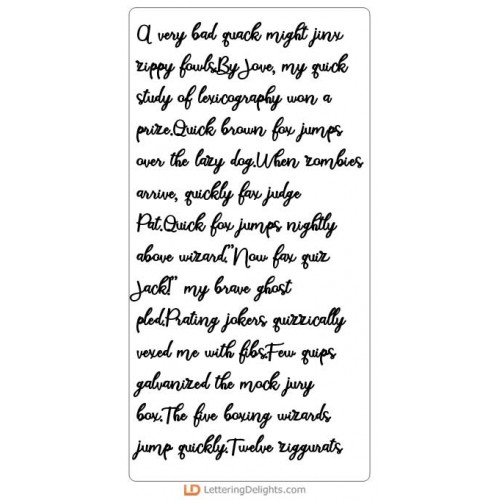 A very bad quack might jinx
zippy fowls.By Jove, my quick
study of lexicography won a
prize.Quick brown fox jumps
over the lazy dog.When zombies
arrive, quickly fax judge
Pat.Quick fox jumps nightly
above wizard."Now fax quiz
Jack!" my brave ghost
pled.Prating jokers quizzically
vexed me with fibs.Few quips
galvanized the mock jury
box.The five boxing wizards
jump quickly.Twelve ziggurats
LD LetteringDelights.com